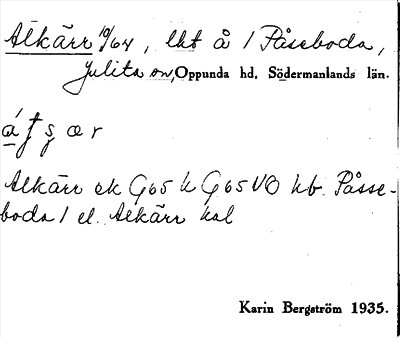 Alkärr 10/64, lht å 1 Påseboda,
Julita sn, Oppunda hd, Södermanlands län.
Alkärr ek G65 h G65 VO hb. Påsse-
boda 1 el. Alkärr kal
Karin Bergström 1935.